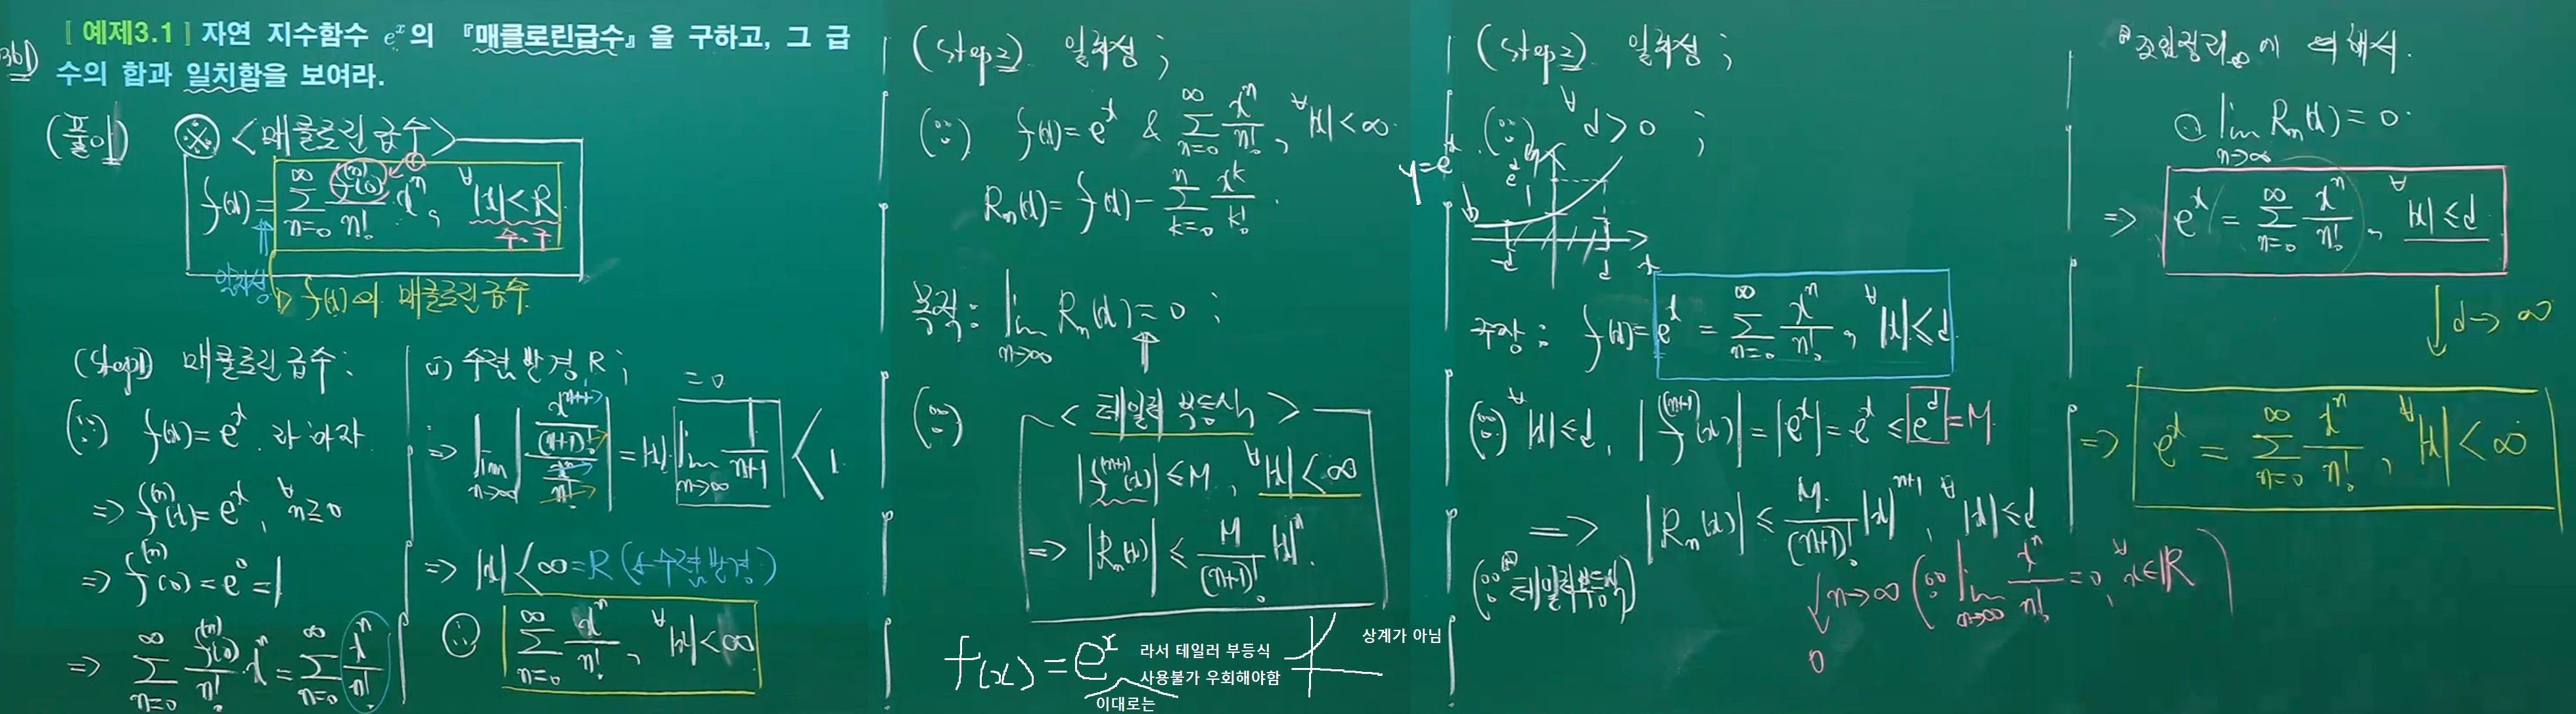 [예제3.1] 자연 지수함수 eˣ의 『매클로린급수』을 구하고, 그 급
수의 합과 일치함을 보여라.
(풀이) ※ <매클로린 급수>
f(x) = ∑_{n=0}^{∞} f⁽ⁿ⁾(0)/n! · xⁿ, ∀|x| < R
수.구
일치성
f(x)의 매클로린 급수
(Step1) 매클로린 급수:
(∵) f(x) = eˣ 라 하자
⇒ f⁽ⁿ⁾(x) = eˣ, ∀n ≥ 0
⇒ f⁽ⁿ⁾(0) = e⁰ = 1
⇒ ∑_{n=0}^{∞} f⁽ⁿ⁾(0)/n! xⁿ = ∑_{n=0}^{∞} xⁿ/n!
ii) 수렴반경 R ;
⇒ lim_{n→∞} | (xⁿ⁺¹/(n+1)!) / (xⁿ/n!) | = |x| · lim_{n→∞} 1/(n+1) < 1.
= 0
⇒ |x| < ∞ = R (수렴반경)
∴ ∑_{n=0}^{∞} xⁿ/n!, ∀|x| < ∞
(Step2) 일치성 ;
(∵) f(x) = eˣ & ∑_{n=0}^{∞} xⁿ/n!, ∀|x| < ∞.
Rₙ(x) = f(x) − ∑_{k=0}^{n} xᵏ/k!.
목적: lim_{n→∞} Rₙ(x) = 0 ;
(∵) <테일러 부등식>
|f⁽ⁿ⁺¹⁾(x)| ≤ M, ∀|x| < ∞
⇒ |Rₙ(x)| ≤ M/(n+1)! |x|ⁿ.
f(x) = eˣ 라서 테일러 부등식
사용불가 우회해야함
이대로는
상계가 아님
(Step2) 일치성 ;
(∵) ∀d > 0 ;
y = eˣ
eᵈ
1
-d d x
주장: f(x) = eˣ = ∑_{n=0}^{∞} xⁿ/n!, ∀|x| ≤ d
(∵) ∀|x| ≤ d, |f⁽ⁿ⁺¹⁾(x)| = |eˣ| = eˣ ≤ eᵈ = M
⇒ |Rₙ(x)| ≤ M/(n+1)! |x|ⁿ⁺¹, ∀|x| ≤ d
(∵ 테일러부등식)
↓ n→∞ (∵ lim_{n→∞} xⁿ/n! = 0, ∀x∈ℝ)
0
조임정리에 의해서.
∴ lim_{n→∞} Rₙ(x) = 0.
⇒ eˣ = ∑_{n=0}^{∞} xⁿ/n!, ∀|x| ≤ d
↓ d → ∞
⇒ eˣ = ∑_{n=0}^{∞} xⁿ/n!, ∀|x| < ∞